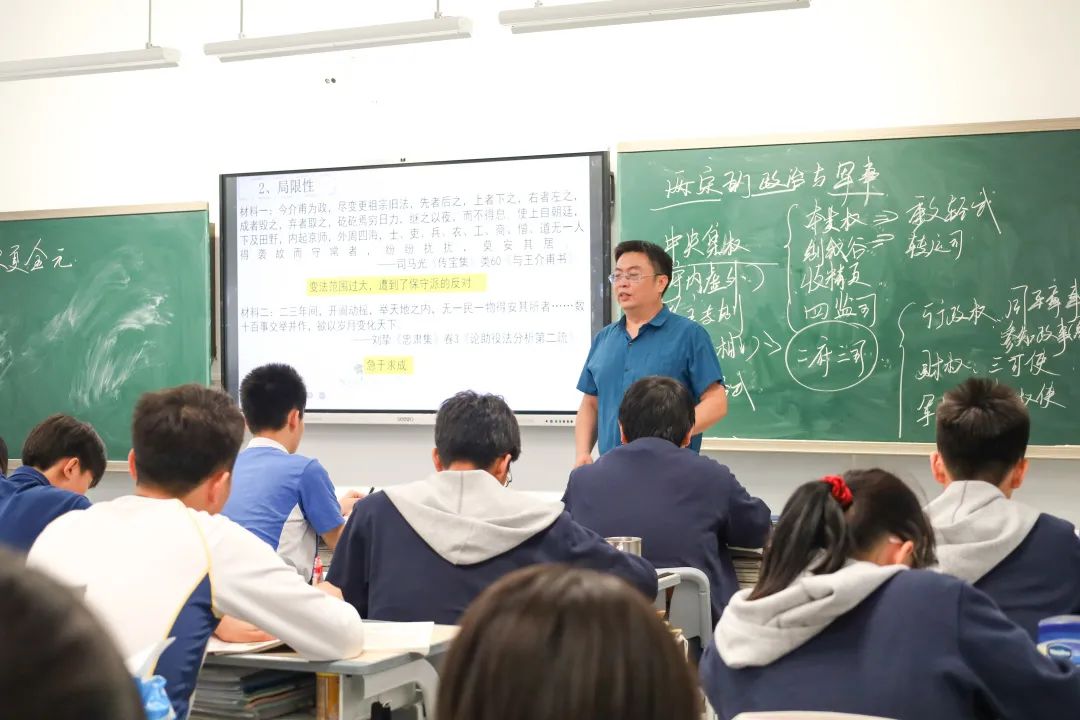 更金元
2、局限性
材料一：今介甫为政，尽变更祖宗旧法，先者后之，上者下之，右者左之，
成者毁之，弃者取之，矻矻焉穷日力，继之以夜，而不得息。使上自朝廷，
下及田野，内起京师，外周四海，士、吏、兵、农、工、商、僧、道无一人
得袭故而守常者，纷纷扰扰，莫安其居。
——司马光《传家集》卷60《与王介甫书》
变法范围过大，遭到了保守派的反对
材料二：二三年间，开阖动摇，举天地之内，无一民一物得安其所者……数
十百事交举并作，欲以岁月变化天下。
——刘挚《忠肃集》卷3《论助役法分析第二疏》
急于求成
两宋的政治与军事
中央集权
本吏权 ⇒ 事文轻武
制钱谷 ⇒ 转运司
收精兵
四监司
二府三司
行政权：同平章事
参知政事
财权：三司使